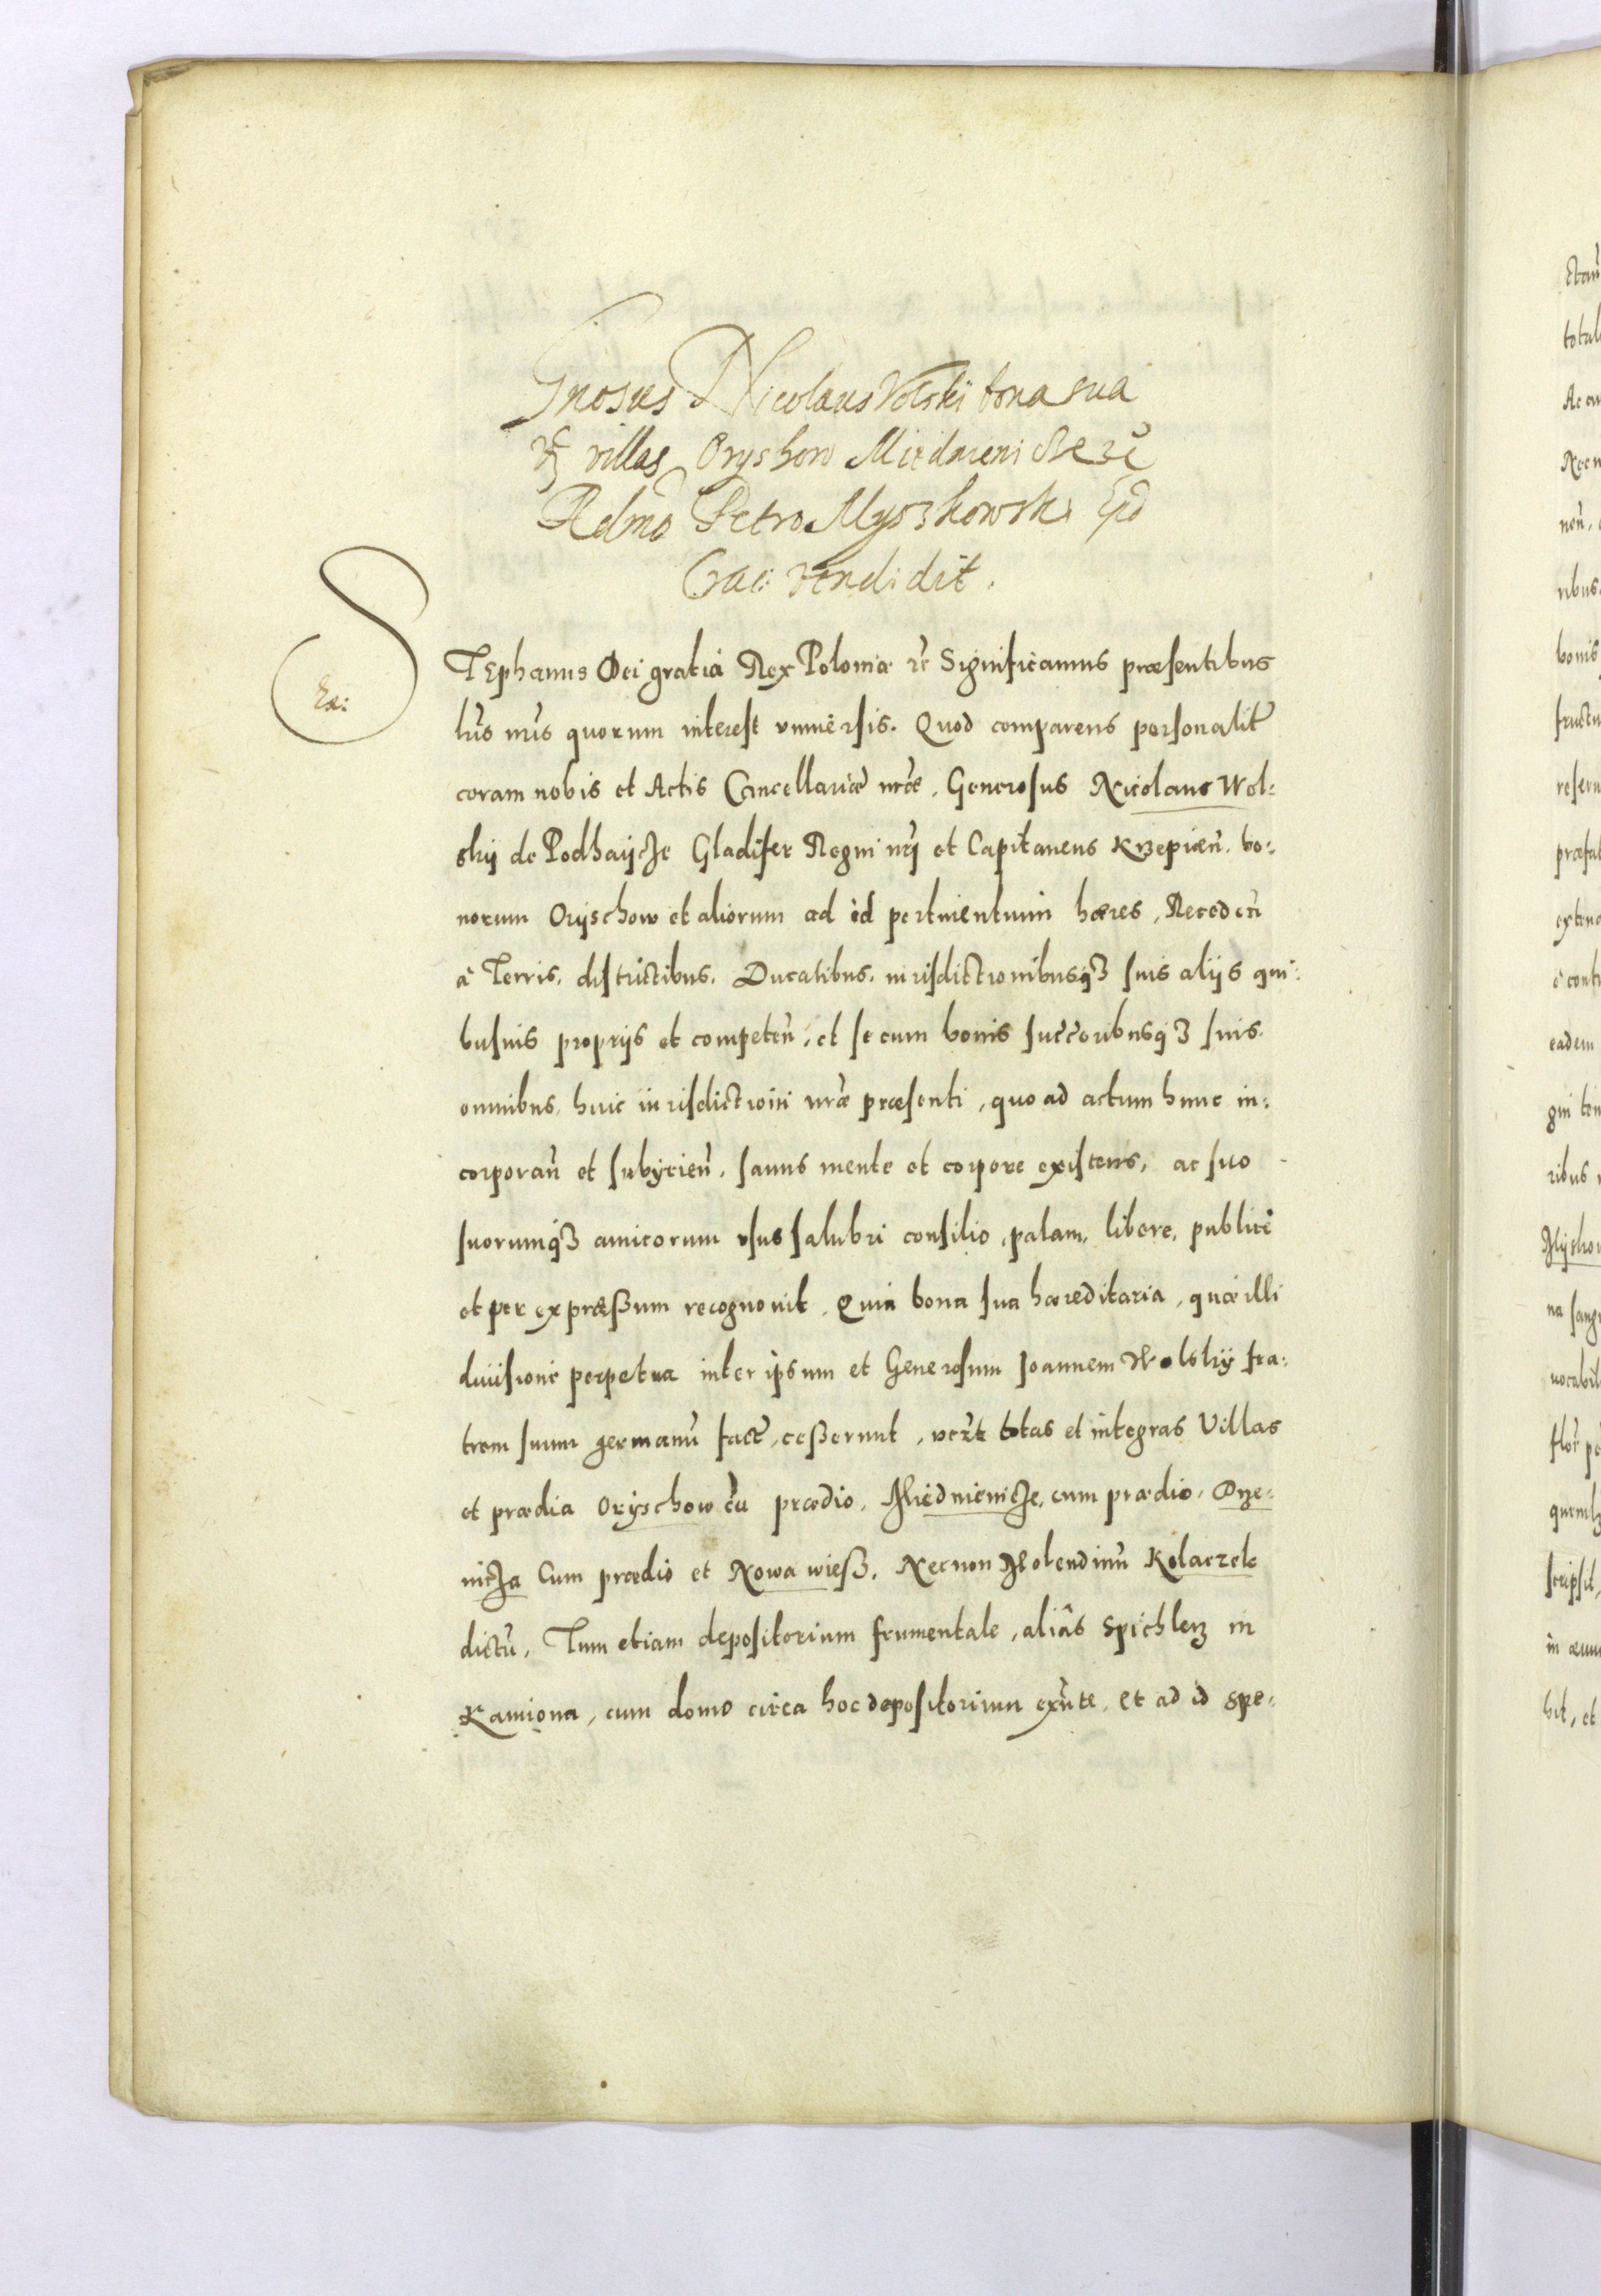 Gnosus Nicolaus Volski bona sua
villas Oryshow Miednieni
Rdmo Petro Myszkowski Epō
Crac: vendidit.
STEphanus Dei gratia Rex Poloniæ ꝛc Significamus præsentibus
Ex:
lr̃is nr̃is quorum interest vniuersis. Quod comparens personalit̃
coram nobis et Actis Cancellariæ nr̃æ, Generosus Nicolaus Wol:
skij de Podhaijcze Gladifer Regni nr̃j et Capitaneus Krzepicen̄. bo:
norum Orijschow et aliorum ad id pertinentium hæres, Receden̄
à Terris, districtibus, Ducatibus, iurisdictionibusq3 suis alijs qui:
busuis proprijs et competen̄, et se cum bonis succ̃oribusq3 suis
omnibus, huic iurisdictioni nr̃æ præsenti, quo ad actum hunc in:
corporan̄ et subijcien̄, sanus mente et corpore existens, ac suo
suorumq3 amicorum vsus salubri consilio, palam, libere, publicè
et per expræßum recognouit, Quia bona sua hæreditaria, quæ illi
diuisione perpetua inter ipsum et Generosum Joannem Wolskij fra:
trem suum germanū fact̃, ceßerunt, totas et integras Villas
et prædia Orijschow cū prædio, Miednienicze, cum prædio, Dze:
nicza Cum prædio et Nowa wieß, Necnon Molendinū Kolaczek
dictū, Tum etiam depositorium frumentale, aliâs Spichlerz in
Kamiona, cum domo circa hoc depositorium ex̃nte, et ad id spe: